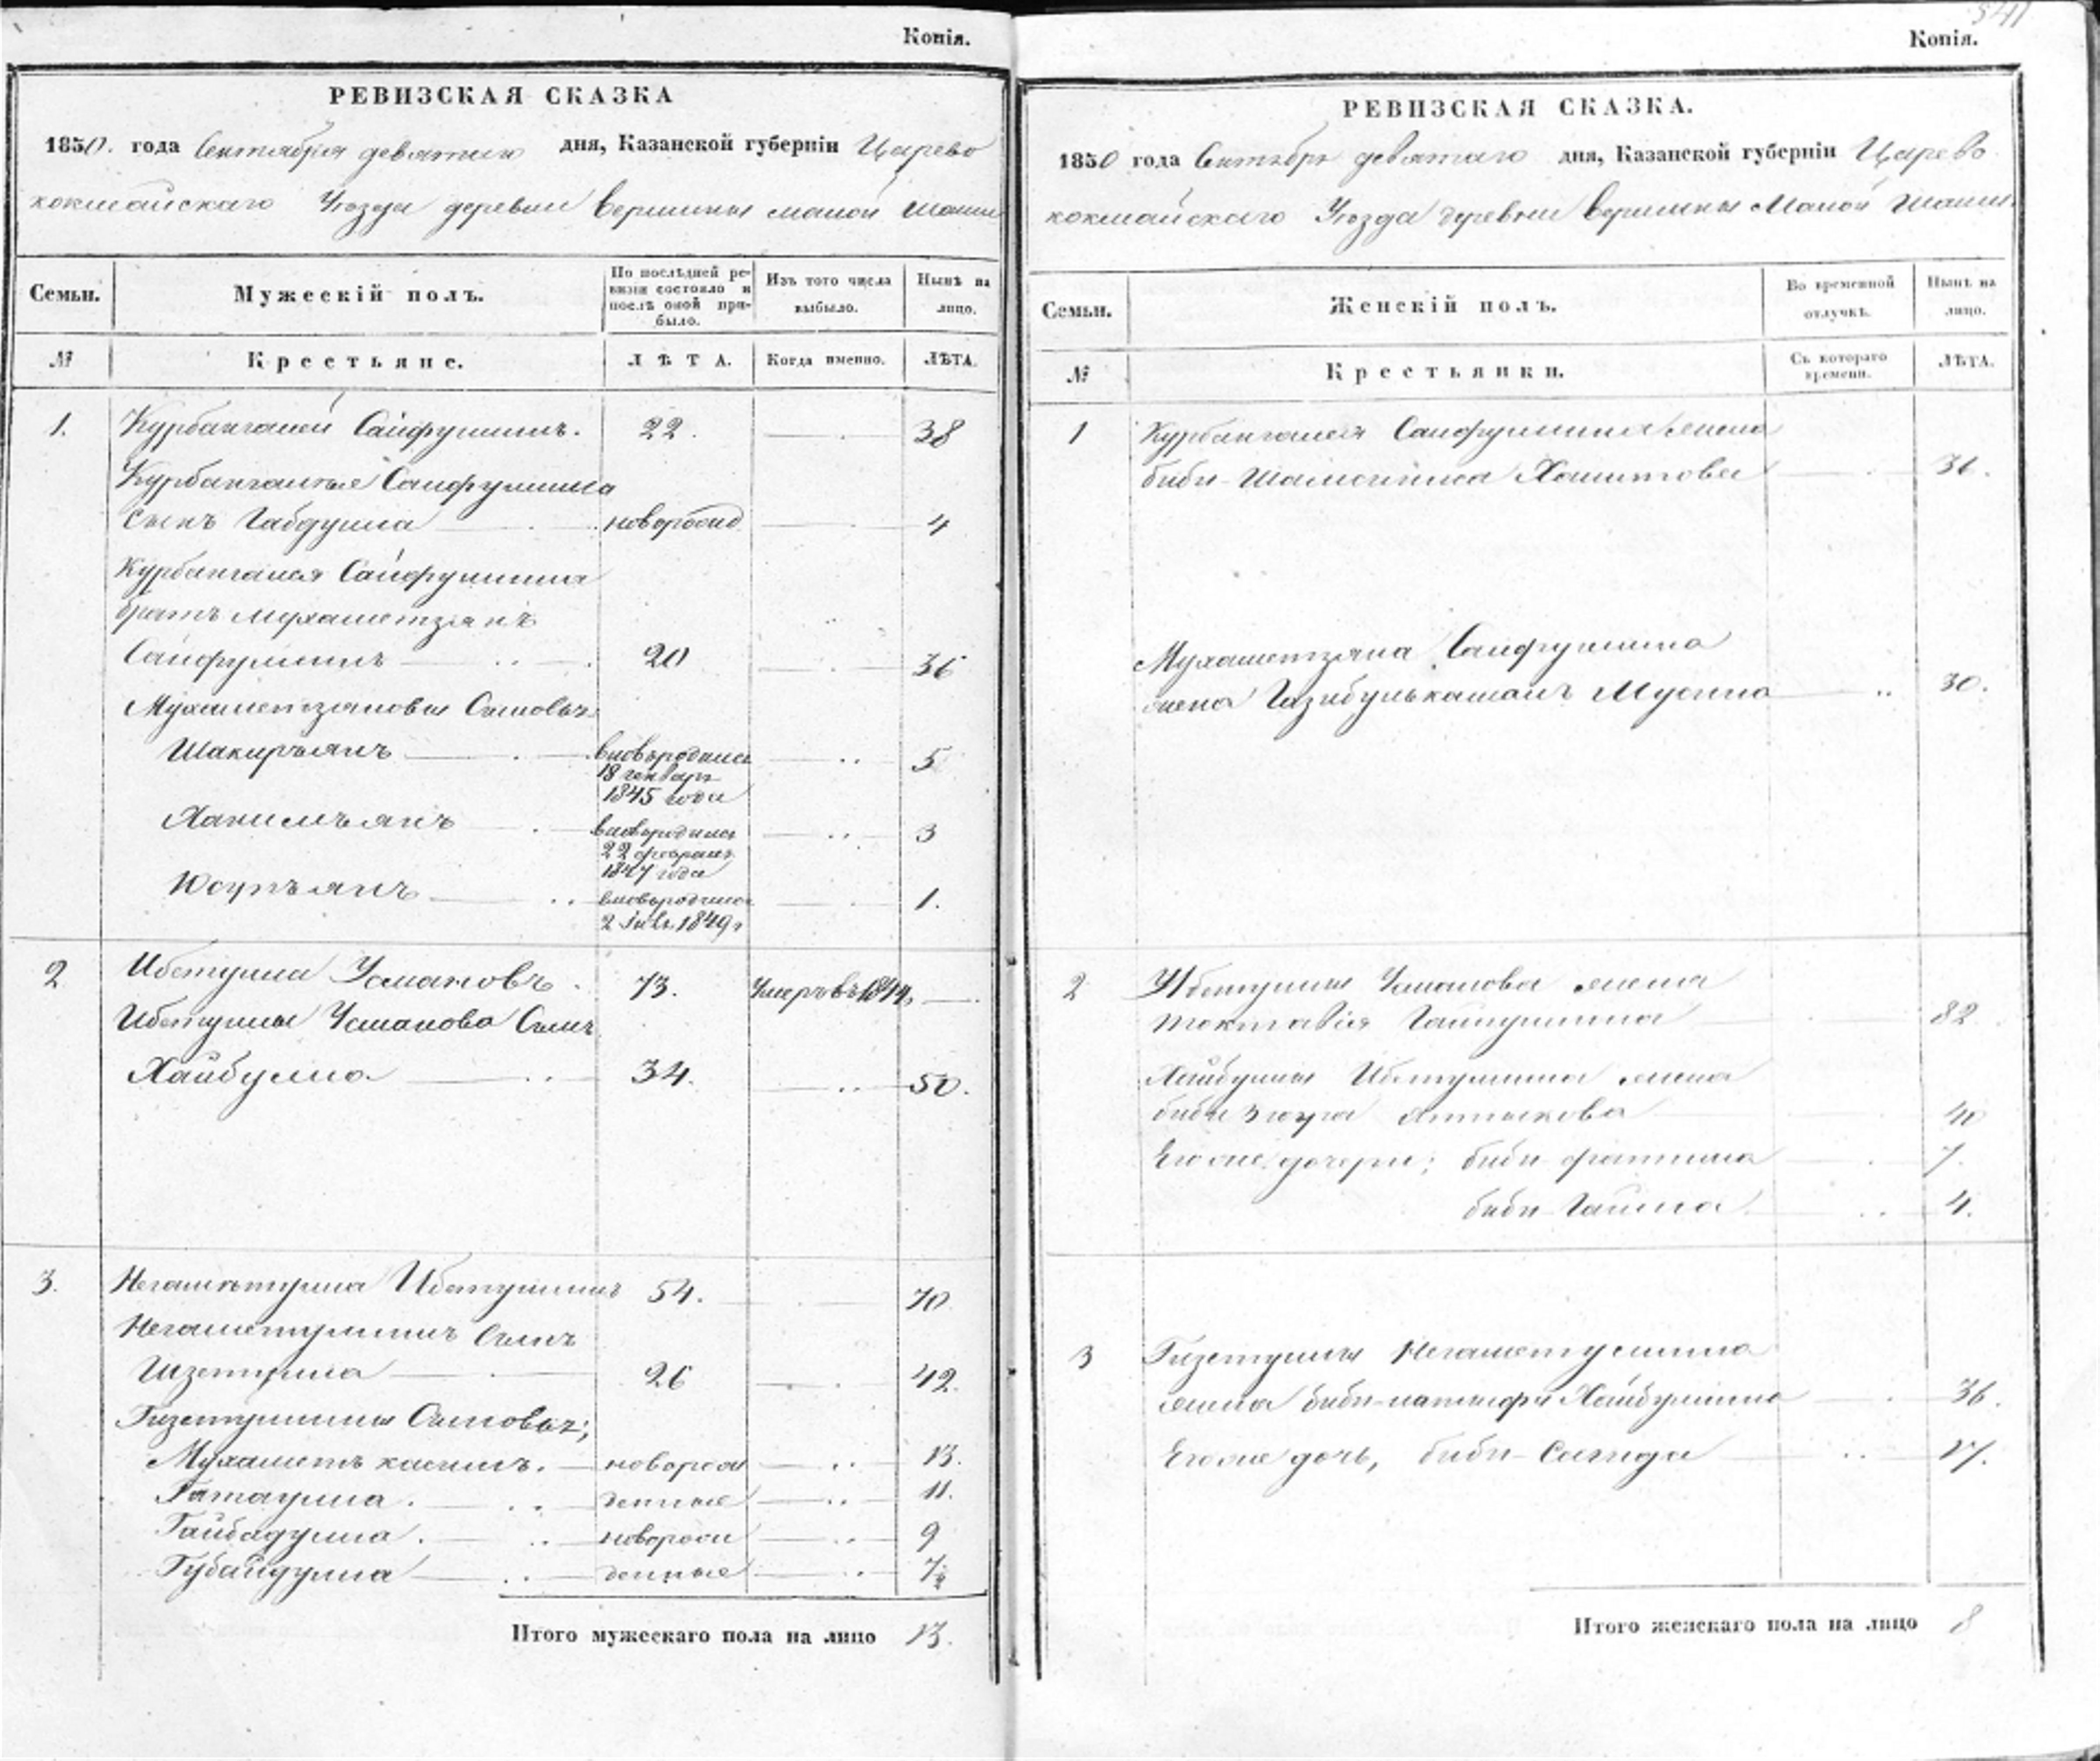 Копія.
РЕВИЗСКАЯ СКАЗКА
1850. года Сентября девятаго дня, Казанской губерніи Царево
кокшайскаго Уѣзда деревни Вершины малой Шаши
Семьи.
Мужескій полъ.
По послѣдней ре-
визіи состояло и
послѣ оной при-
было.
Изъ того числа
выбыло.
Нынѣ на
лицо.
№
Крестьяне.
ЛѢТА.
Когда именно.
ЛѢТА.
1. Курбангалей Сайфуллинъ. 22. 38
Курбангалея Сайфуллина
сынъ Габдулла новорожд 4
Курбангалея Сайфуллина
братъ Мухаметзянъ
Сайфуллинъ 20 36
Мухаметзяновы Сыновья
Шакирьянъ вновьродился 5
18 генваря
1845 года
Хакимъянъ вновьродился 3
22 февраля
1847 года
Юсупъянъ вновьродился 1.
2 іюля 1849 г
2 Ибетулла Усмановъ. 73. Умеръ въ 1844
Ибетуллы Усманова Сынъ
Хайбулла 34. 50.
3. Негаметулла Ибетуллинъ 54. 70
Негаметуллинъ Сынъ
Гизетулла 26 42.
Гизетуллины Сыновья;
Мухаметъ касимъ. новорож 13.
Гатаулла. денные 11.
Гайбадулла. новорож 9
Губайдулла денные 7½
Итого мужескаго пола на лицо 13.
541
Копія.
РЕВИЗСКАЯ СКАЗКА.
1850 года Сентября девятаго дня, Казанской губерніи Царево
кокшайскаго Уѣзда деревни Вершины Малой Шаши
Семьи.
Женскій полъ.
Во временной
отлучкѣ.
Нынѣ на
лицо.
№
Крестьянки.
Съ котораго
времени.
ЛѢТА.
1 Курбангалея Сайфуллина жена
биби-Шамсиниса Хамитова 31.
Мухаметзяна Сайфуллина
жена Газибулькамалъ Мусина 30.
2 Ибетуллы Усманова жена
Токтабія Гайнуллина 82
Хайбуллы Ибетуллина жена
биби Зюгра 40
Его же дочери; биби фатима 7.
биби Гайша 4.
3 Гизетуллы Негаметуллина
жена биби-латифа Хайбуллина 36.
Его же дочь, биби-Сагида 17.
Итого женскаго пола на лицо 8